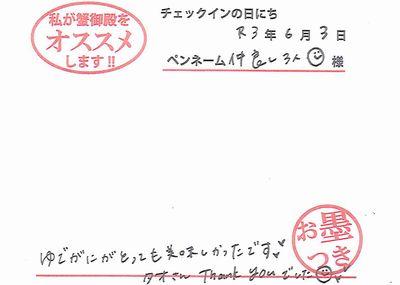 私が蟹御殿を
オススメ
します!!
チェックインの日にち
R3年6月3日
ペンネーム 仲良し3人 様
お墨つき
ゆでがにがとっても美味しかったです
タオさん Thank youでした